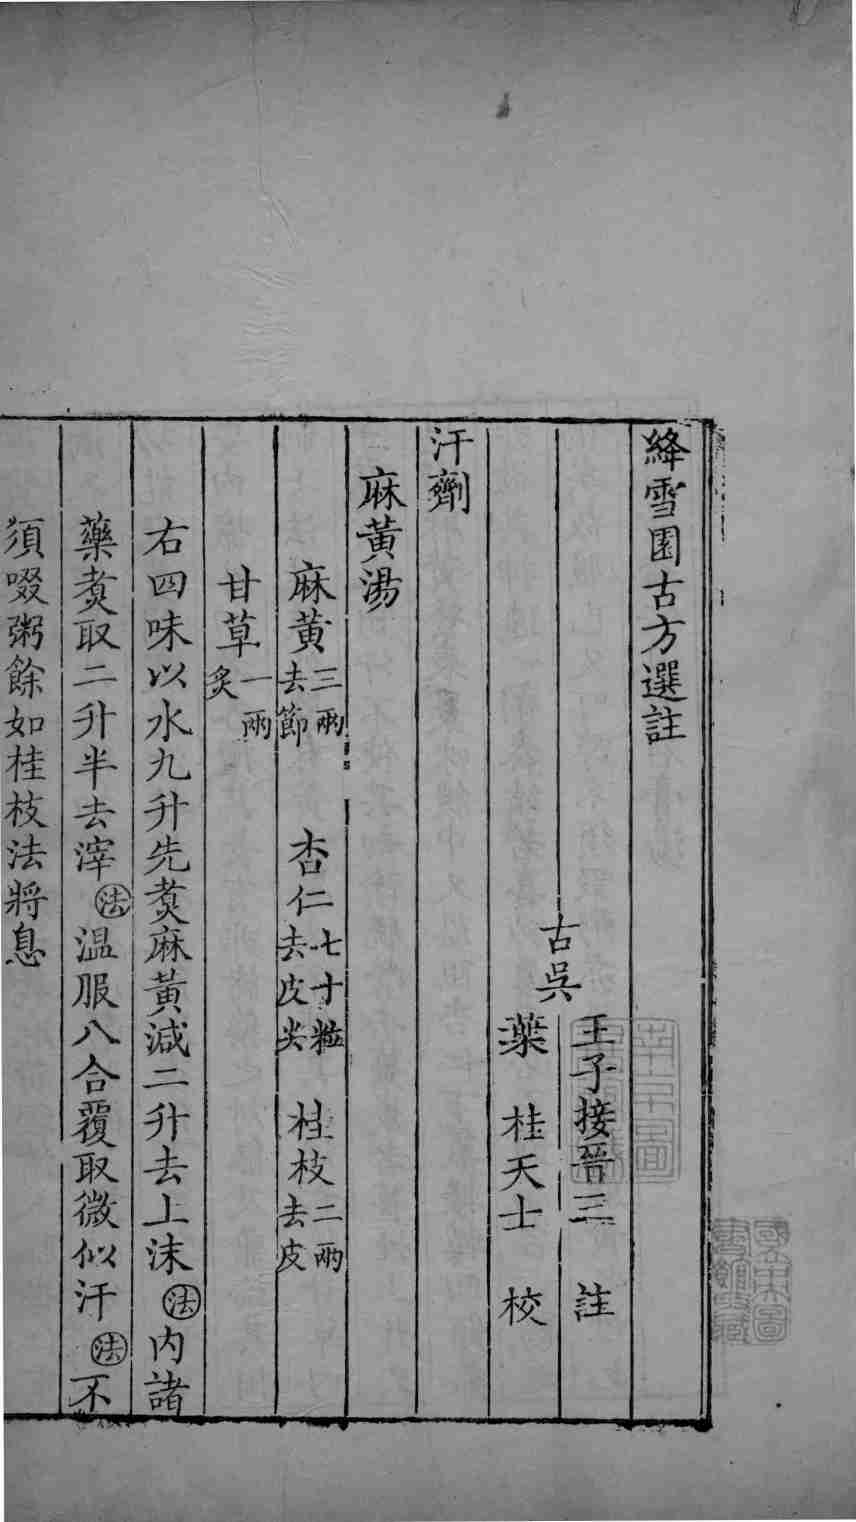 絳雪園古方選註
古吳
王子接晉三 註
葉 桂天士 校
汗劑
麻黃湯
麻黃三兩去節 杏仁七十粒去皮尖 桂枝二兩去皮
甘草一兩炙
右四味以水九升先煑麻黃減二升去上沫法內諸
藥煑取二升半去滓法温服八合覆取微似汗法不
須啜粥餘如桂枝法將息